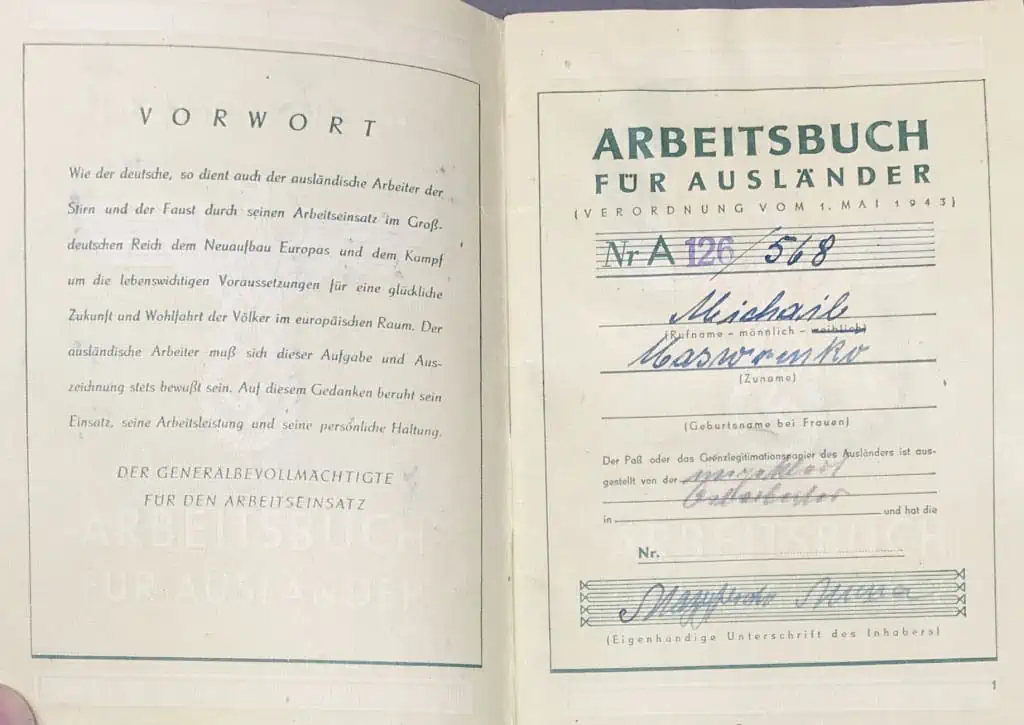 VORWORT
Wie der deutsche, so dient auch der ausländische Arbeiter der
Stirn und der Faust durch seinen Arbeitseinsatz im Groß-
deutschen Reich dem Neuaufbau Europas und dem Kampf
um die lebenswichtigen Voraussetzungen für eine glückliche
Zukunft und Wohlfahrt der Völker im europäischen Raum. Der
ausländische Arbeiter muß sich dieser Aufgabe und Aus-
zeichnung stets bewußt sein. Auf diesem Gedanken beruht sein
Einsatz, seine Arbeitsleistung und seine persönliche Haltung.
DER GENERALBEVOLLMÄCHTIGTE
FÜR DEN ARBEITSEINSATZ
ARBEITSBUCH
FÜR AUSLÄNDER
ARBEITSBUCH
FÜR AUSLÄNDER
(VERORDNUNG VOM 1. MAI 1943)
Nr A 126/568
Michail
(Rufname - männlich - weiblich)
(Zuname)
(Geburtsname bei Frauen)
Der Paß oder das Grenzlegitimationspapier des Ausländers ist aus-
gestellt von der ungeklärt
Ostarbeiter
in und hat die
ARBEITSBUCH
Nr.
(Eigenhändige Unterschrift des Inhabers)
1